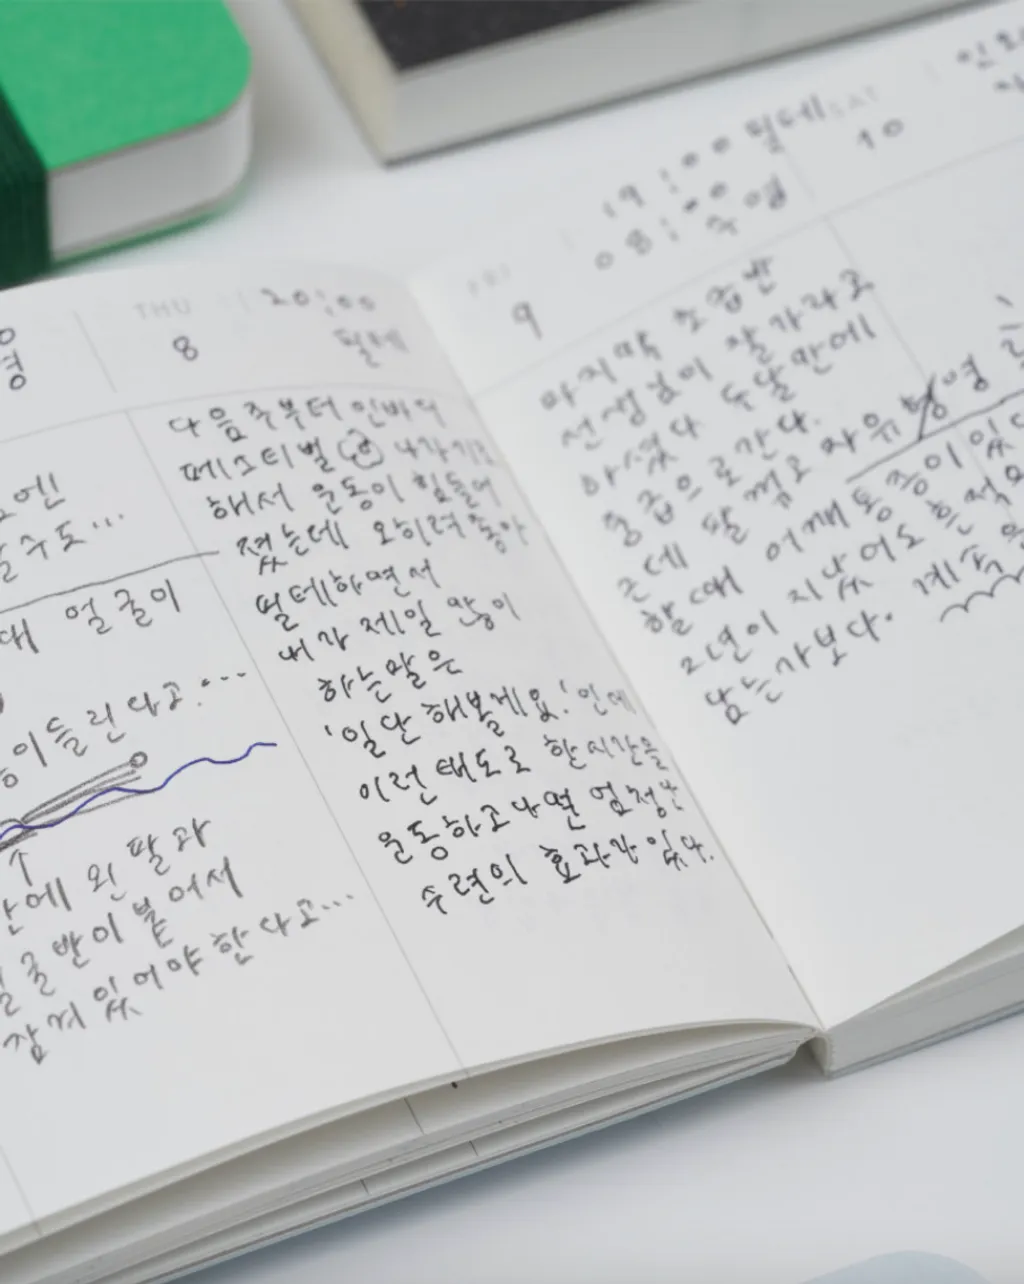 영
엔
수도...
얼굴이
이들린다고...
에 왼 팔과
굴 반이 붙어서
잠겨 있어야 한다고...
THU 20:00
8 필테
다음주부터 인바디
페스티벌 나가기로
해서 운동이 힘들어
졌는데 오히려 좋아
필테하면서
내가 제일 많이
하는말은
'일단 해볼게요!' 인데
이런 태도로 한시간을
운동하고나면 엄청난
수련의 효과가 있다.
FRI 19:00 필테
9 08:00 수영
마지막 초급반
선생님이 잘 가라고
하셨다 두달만에
중급으로간다.
근데 팔 꺾고 자유 영
할 때 어깨통증이 있
2년이 지났어도 흔적
남는가보다. 계속
SAT
10